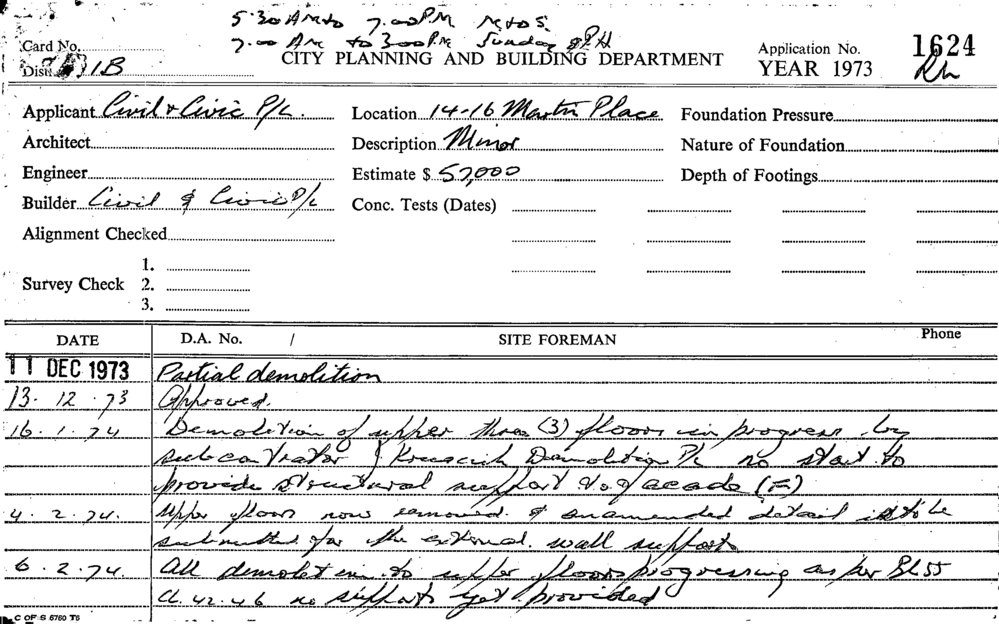 5.30 AM to 7.00 PM M to S.
7.00 AM to 3.00 P.M. Sunday & PH
Card No.
CITY PLANNING AND BUILDING DEPARTMENT
Application No. 1624
Dist. 1B
YEAR 1973
Applicant Civil & Civic P/L. Location 14-16 Martin Place Foundation Pressure
Architect Description Minor Nature of Foundation
Engineer Estimate $ 57,000 Depth of Footings
Builder Civil & Civic P/L Conc. Tests (Dates)
Alignment Checked
1.
Survey Check 2.
3.
DATE D.A. No. / SITE FOREMAN Phone
11 DEC 1973 Partial demolition
13. 12. 73 Approved.
16. 1. 74 Demolition of upper three (3) floors in progress by
subcontrator Demolition P/L no start to
provide structural support to facade (F)
4. 2. 74. upper floors now removed & an amended detail is to be
submitted for the external wall support
6. 2. 74. All demolition to upper floors progressing as per BL55
Cl. 42.46 no supports yet provided
C OF S 6760 T6